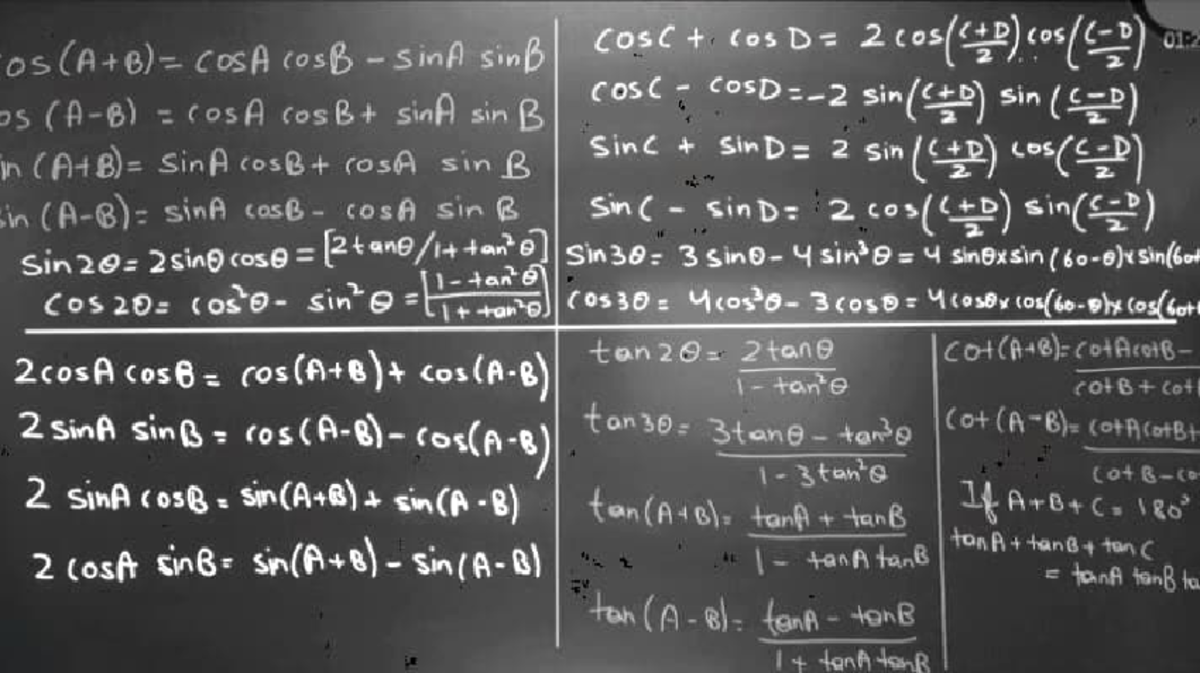 os (A+B) = cosA cosB - sinA sinB
os (A-B) = cosA cosB + sinA sin B
in (A+B) = SinA cosB + cosA sin B
in (A-B) = sinA cosB - cosA sin B
Sin2θ = 2sinθ cosθ = [2tanθ/1+tan²θ]
Cos 2θ = cos²θ - sin²θ = [1-tan²θ/1+tan²θ]
cosC + cos D = 2 cos((C+D)/2) cos((C-D)/2)
cosC - cosD = -2 sin((C+D)/2) sin((C-D)/2)
SinC + sinD = 2 sin((C+D)/2) cos((C-D)/2)
SinC - sinD = 2 cos((C+D)/2) sin((C-D)/2)
Sin3θ = 3 sinθ - 4 sin³θ = 4 sinθ×sin(60-θ)×sin(60+
Cos3θ = 4cos³θ - 3cosθ = 4cosθ×cos(60-θ)×cos(60+
2cosA cosB = cos(A+B) + cos(A-B)
2 sinA sinB = cos(A-B) - cos(A-B)
2 sinA cosB = sin(A+B) + sin(A-B)
2 cosA sinB = sin(A+B) - sin(A-B)
tan2θ = 2tanθ
1 - tan²θ
tan3θ = 3tanθ - tan³θ
1 - 3tan²θ
tan(A+B) = tanA + tanB
1 - tanA tanB
tan(A-B) = tanA - tanB
1 + tanA tanB
Cot(A+B) = cotAcotB -
cotB + cot
Cot(A-B) = cotAcotB +
cotB - co
If A+B+C = 180°
tanA + tanB + tanC
= tanA tanB ta